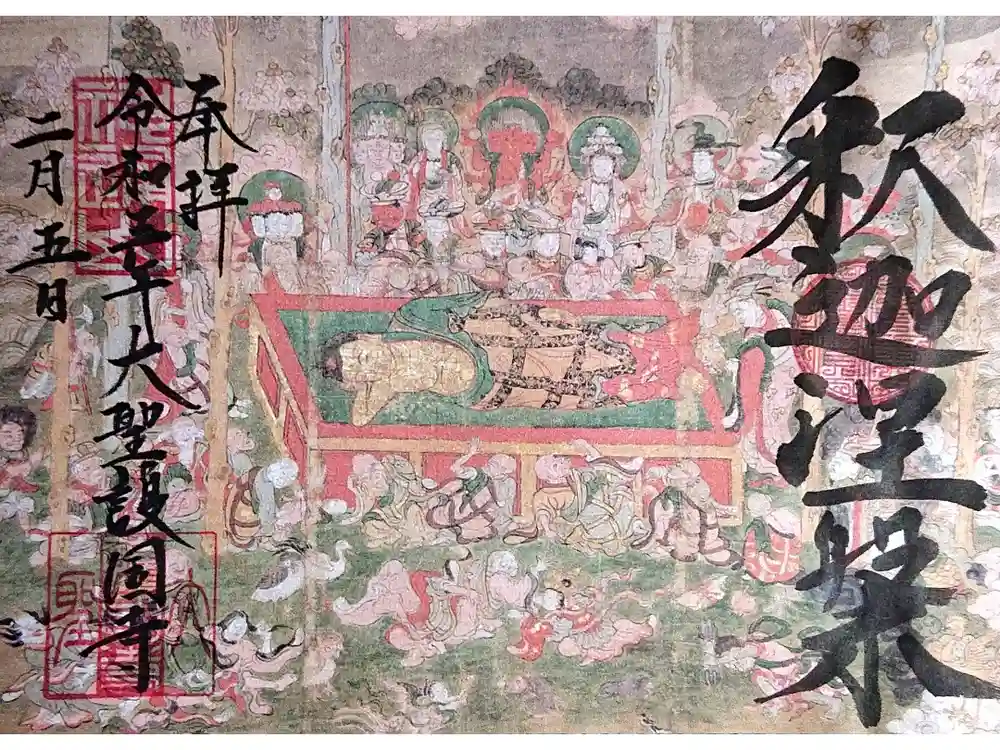 釈迦涅槃
奉拝
令和五年大聖護国寺
二月五日